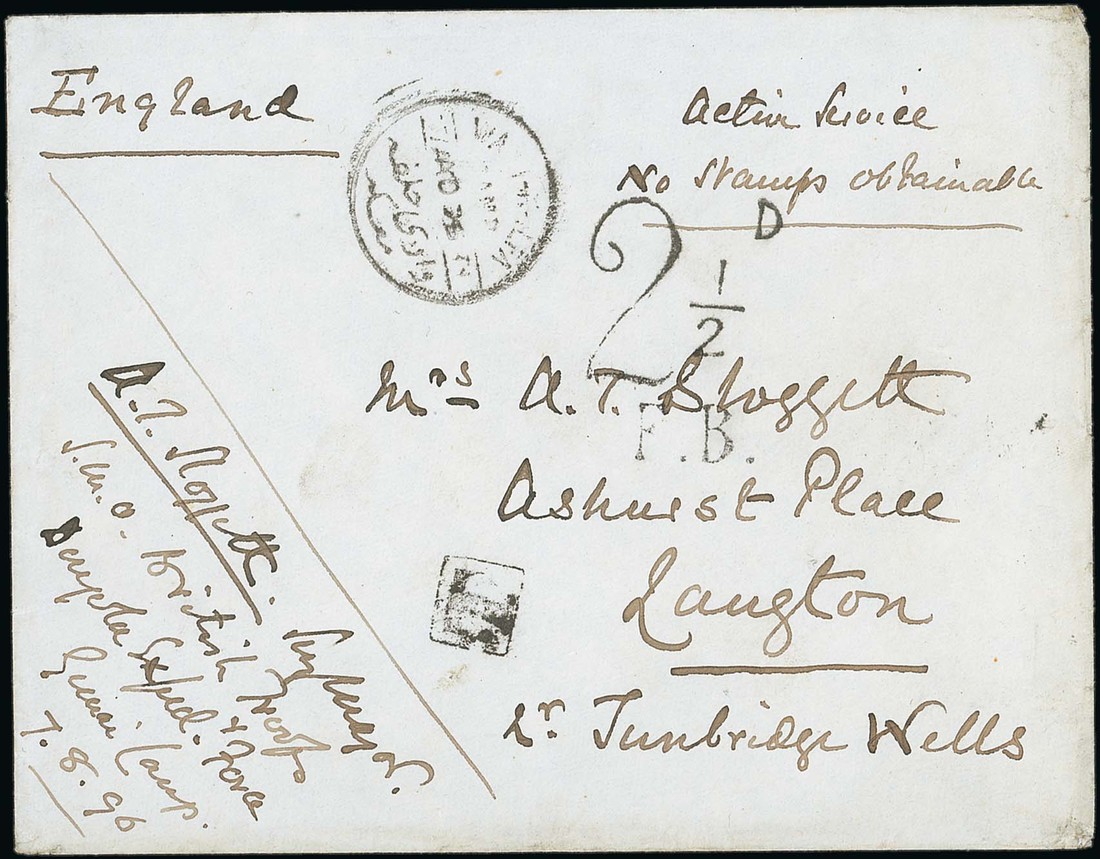 England
Active Service
No Stamps obtainable
2 1/2 D
F.B.
Mrs A.T. Sloggett
Ashurst Place
Langton
nr. Tunbridge Wells
T
A.T. Sloggett.
S.M.O. British Troops
Dongola Exped. Force
Camp.
7.8.96